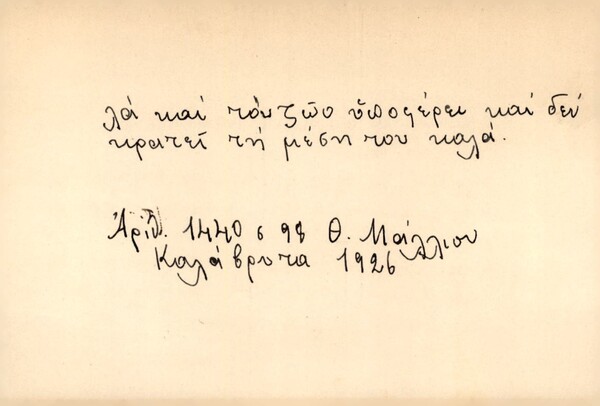 λά καί τόν ζῶο ὕποφέρει καί δεν
κρατεῖ τή μέση του καλά.
Ἀριθ. 1440 σ 98 Θ. Μάλλιου
Καλάβρυτα 1926